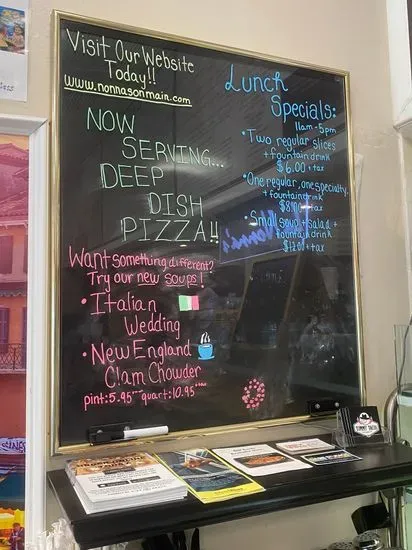 Visit Our Website
Today!!
www.nonnasonmain.com
NOW
SERVING...
DEEP
DISH
PIZZA!!
Want something different?
Try our new soups!
• Italian
Wedding
• New England
Clam Chowder
pint: 5.95 quart: 10.95
Lunch
Specials:
11am - 5pm
• Two regular slices
+ fountain drink
$6.00 + tax
• One regular, one specialty,
+ fountain drink
$8.00 + tax
• Small soup + salad +
fountain drink
$12.00 + tax